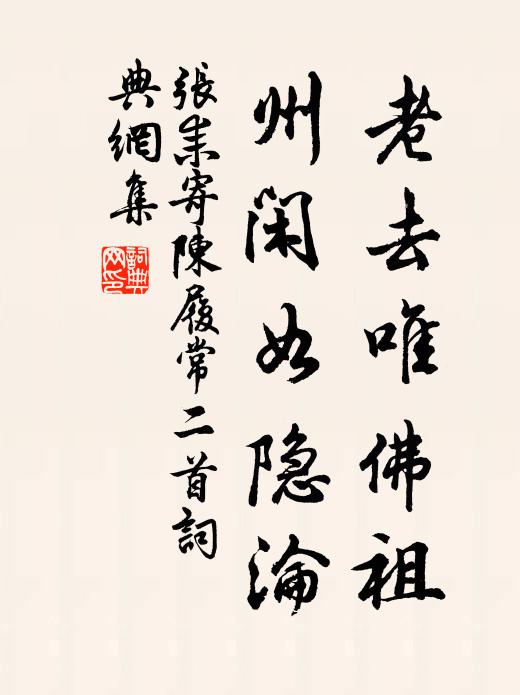 老去唯佛祖
州闲如隐淪
張耒寄陳履常二首詞
典網集
詞典網印